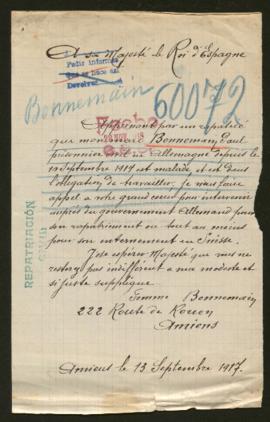 A sa Majesté le Roi d'Espagne
Pedir informes
Que se hace así
Devolver
Bonnemain
60072
Fecha
Apprenant par un rapatrié
que mon mari Bonnemain Paul
prisonnier en Allemagne depuis le
13 septembre 1914 est malade et est dans
l'obligation de travailler, je viens faire
appel a votre grand cœur pour intervenir
auprès du gouvernement Allemand pour
son rapatriement ou tout au moins
pour son internement en Suisse.
J'ose espérer Majesté que vous ne
resterez pas indifférent a ma modeste et
si juste supplique.
Femme Bonnemain
222 Route de Rouen
Amiens
Amiens le 13 Septembre 1917.
REPATRIACIÓN
CIVIL